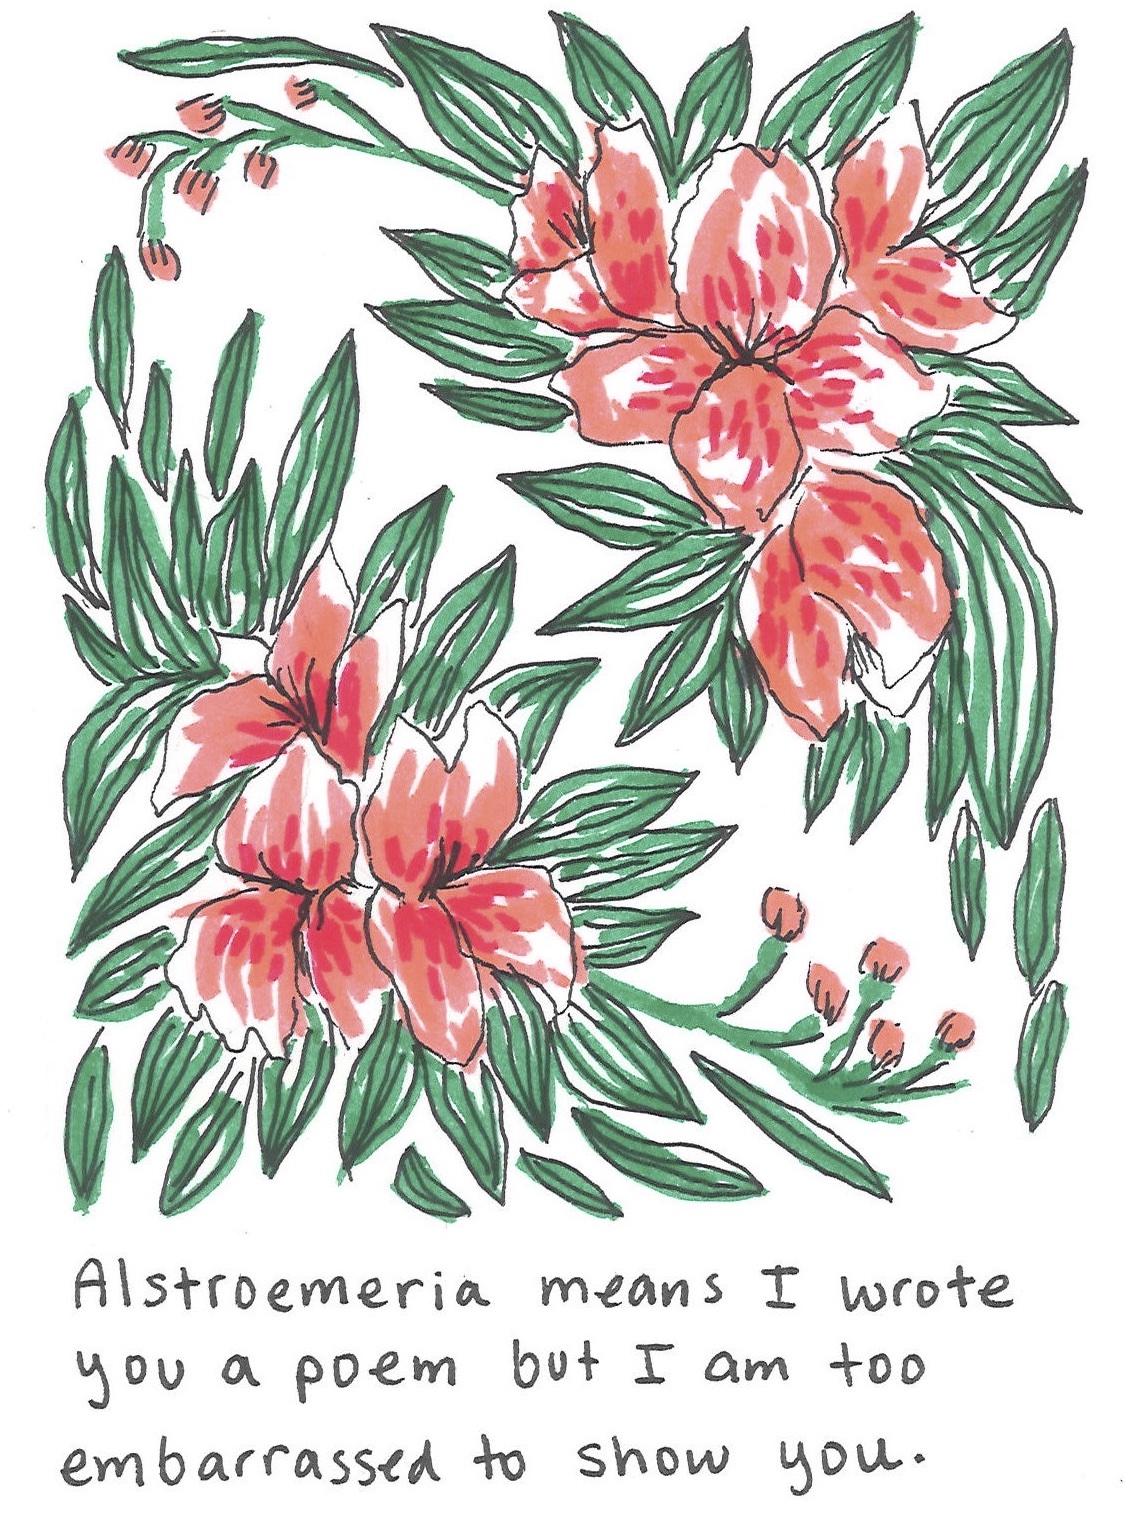 Alstroemeria means I wrote
you a poem but I am too
embarrassed to show you.